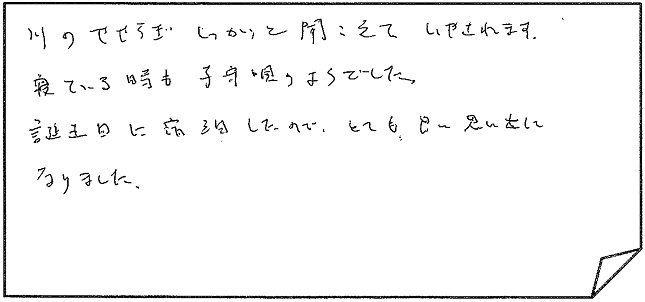 川のせせらぎ しっかりと聞こえて いやされます。
寝ている時も 子守唄のようでした。
誕生日に宿泊したので、とても 良い思い出に
なりました。